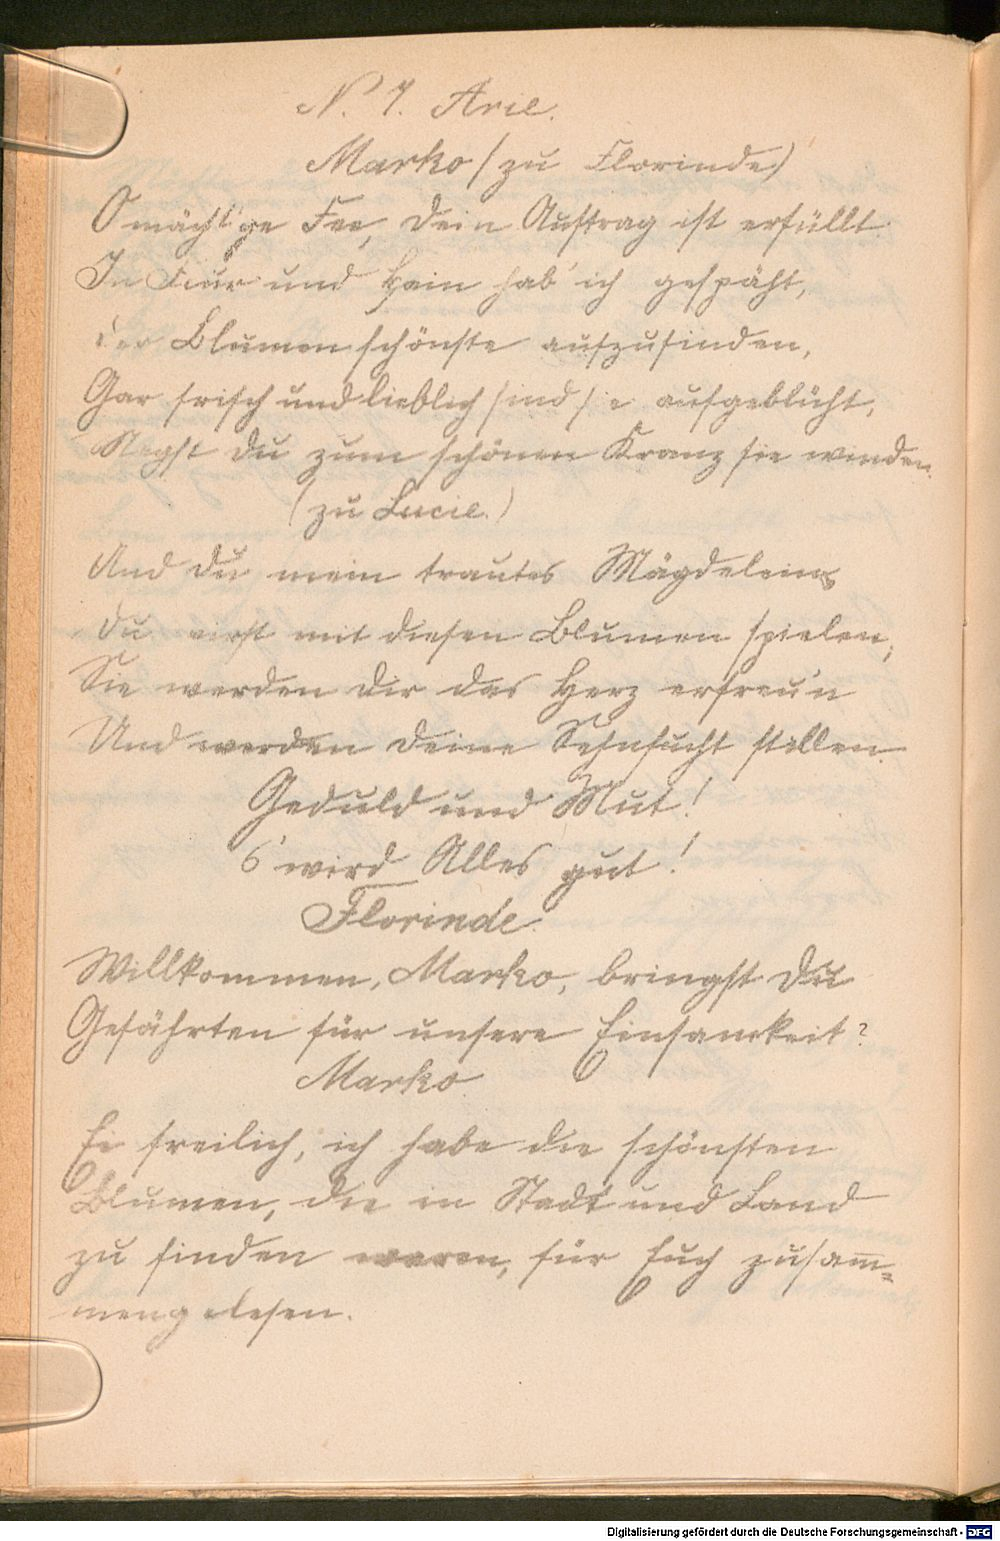 N. 7. Arie.
Marko (zu Florinde)
O mächt'ge Fee, dein Auftrag ist erfüllt.
In Flur und Hain hab' ich gespäht,
der Blumen schönste aufzufinden,
Gar frisch und lieblich sind sie aufgeblüht,
Magst du zum schönen Kranz sie winden.
(zu Lucie.)
Und du mein trautes Mägdelein
du wirst mit diesen Blumen spielen,
Sie werden dir das Herz erfreu'n
Und werden deine Sehnsucht stillen.
Geduld und Mut!
S' wird Alles gut!
Florinde.
Willkommen, Marko, bringst du
Gefährten für unsere Einsamkeit?
Marko.
Ei freilich, ich habe die schönsten
Blumen, die in Stadt und Land
zu finden waren, für Euch zusam̅=
mengelesen.
Digitalisierung gefördert durch die Deutsche Forschungsgemeinschaft - DFG